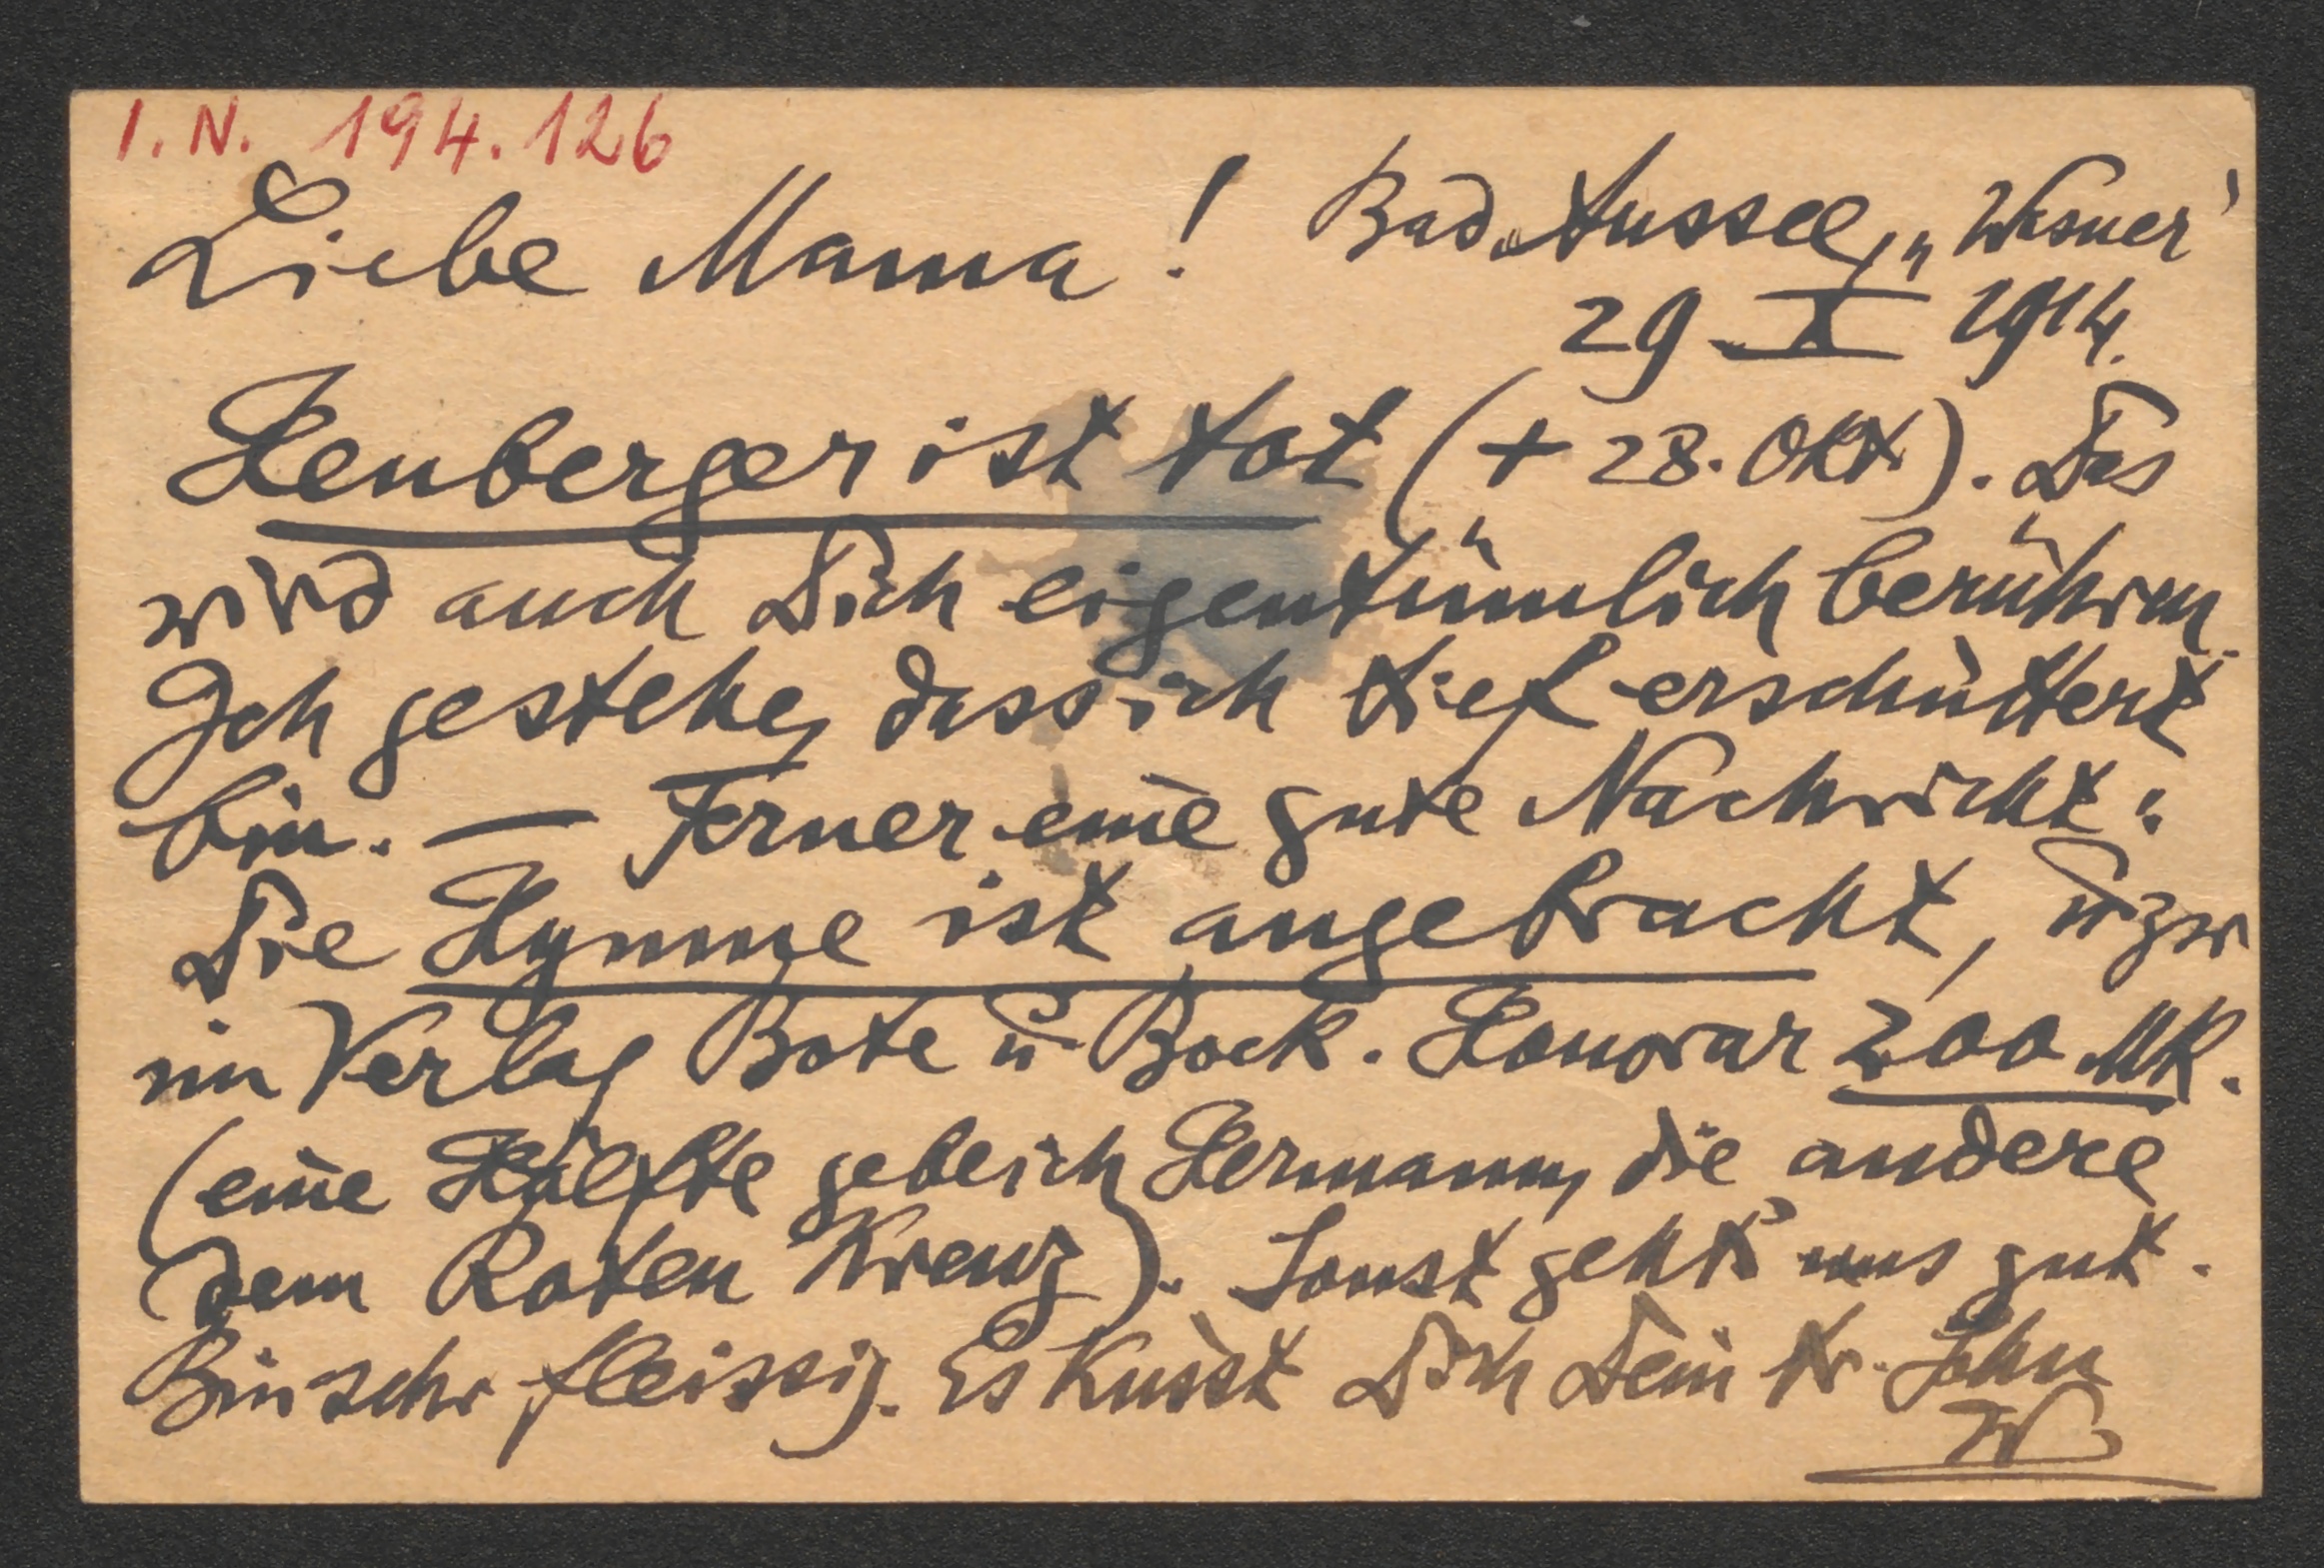 I. N. 194.126
Liebe Mama! Bad Aussee, „Wasner“
29. X 1914.
Heuberger ist tot († 28. Okt). Das
wird auch Dich eigentümlich berühren.
Ich gestehe, dass ich tief erschüttert
bin. — Ferner eine gute Nachricht:
Die Hymne ist angebracht, uzw
im Verlag Bote u Bock. Honorar 200 MK.
(eine Hälfte gebe ich Hermann, die andere
dem Roten Kreuz). Sonst geht's uns gut.
Bin sehr fleissig. Es küsst Dich Dein tr. Sohn
W